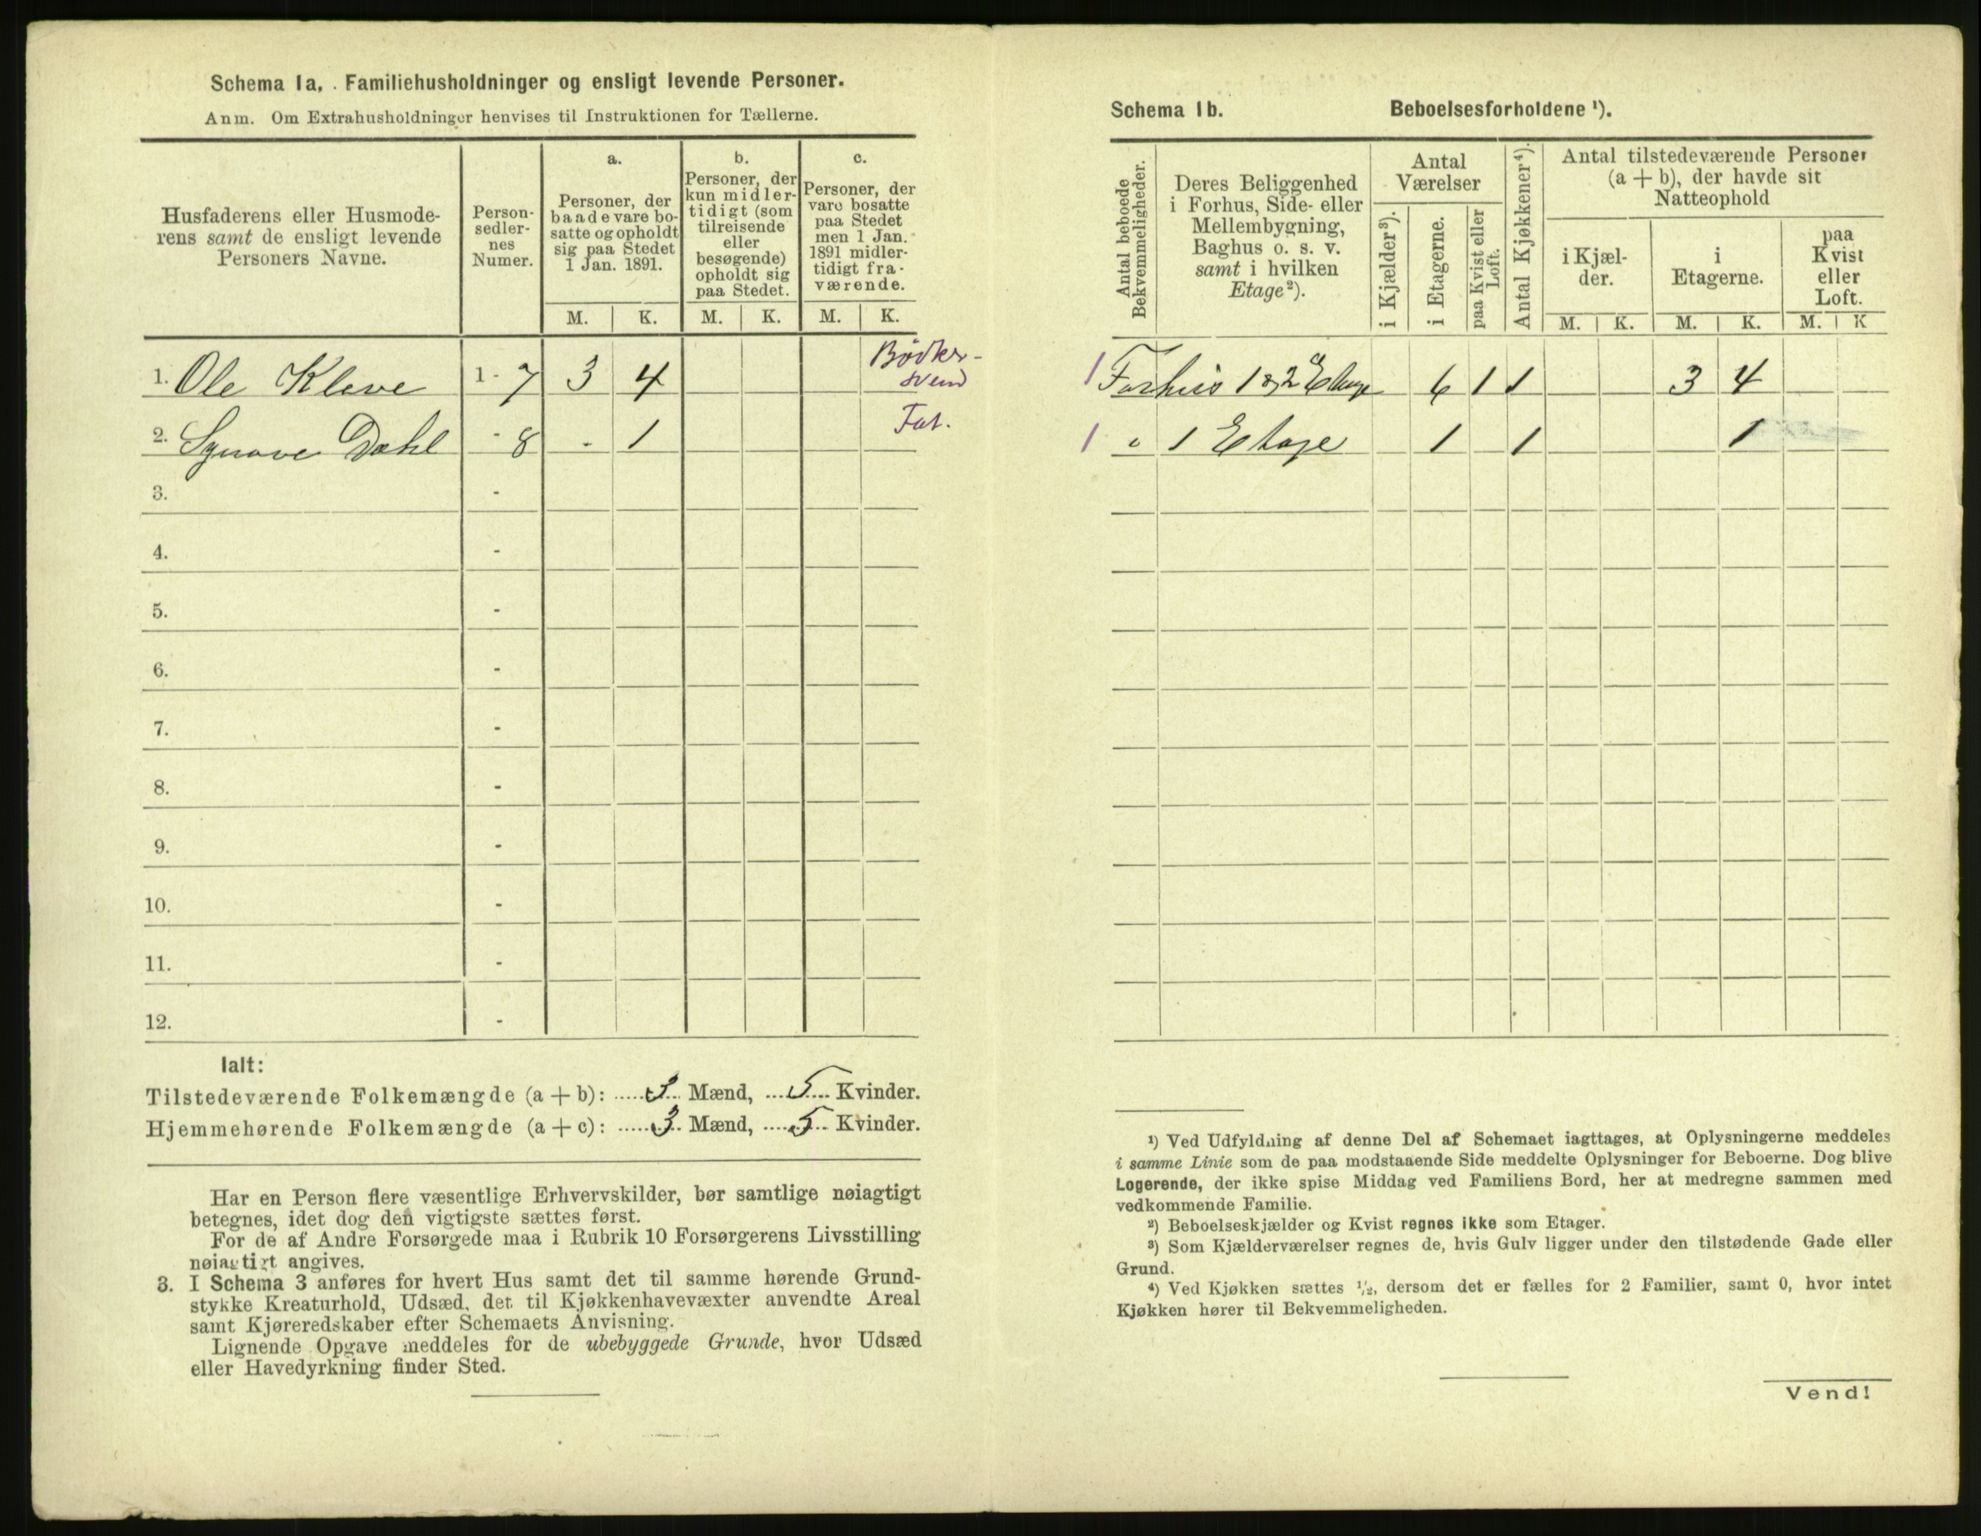 Schema 1a. Familiehusholdninger og ensligt levende Personer.
Anm. Om Extrahusholdninger henvises til Instruktionen for Tællerne.
Husfaderens eller Husmode-
rens samt de ensligt levende
Personers Navne.
Person-
sedler-
nes
Numer.
a.
Personer, der
baade vare bo-
satte og opholdt
sig paa Stedet
1 Jan. 1891.
b.
Personer, der
kun midler-
tidigt (som
tilreisende
eller
besøgende)
opholdt sig
paa Stedet.
c.
Personer, der
vare bosatte
paa Stedet
men 1 Jan.
1891 midler-
tidigt fra-
værende.
M. K. M. K. M. K.
1. Ole Kleve 1 - 7 3 4 Bödker-
svend
2. Synnove Dahl - 8 - 1 Fat.
3. -
4. -
5. -
6. -
7. -
8. -
9. -
10. -
11. -
12. -
Ialt:
Tilstedeværende Folkemængde (a + b): 3 Mænd, 5 Kvinder.
Hjemmehørende Folkemængde (a + c): 3 Mænd, 5 Kvinder.
Har en Person flere væsentlige Erhvervskilder, bør samtlige nøiagtigt
betegnes, idet dog den vigtigste sættes først.
For de af Andre Forsørgede maa i Rubrik 10 Forsørgerens Livsstilling
nøiagtigt angives.
3. I Schema 3 anføres for hvert Hus samt det til samme hørende Grund-
stykke Kreaturhold, Udsæd, det til Kjøkkenhavevæxter anvendte Areal
samt Kjøreredskaber efter Schemaets Anvisning.
Lignende Opgave meddeles for de ubebyggede Grunde, hvor Udsæd
eller Havedyrkning finder Sted.
Schema 1b. Beboelsesforholdene ¹).
Antal beboede
Bekvemmeligheder.
Deres Beliggenhed
i Forhus, Side- eller
Mellembygning,
Baghus o. s. v.
samt i hvilken
Etage²).
Antal
Værelser
i Kjælder³).
i Etagerne.
paa Kvist eller
Loft.
Antal Kjøkkener⁴).
Antal tilstedeværende Personer
(a + b), der havde sit
Natteophold
i Kjæl-
der.
i
Etagerne.
paa
Kvist
eller
Loft.
M. K. M. K. M. K
1 Forhus 1 & 2 Etage 6 1 1 3 4
1 " 1 Etage 1 1 1
¹) Ved Udfyldning af denne Del af Schemaet iagttages, at Oplysningerne meddeles
i samme Linie som de paa modstaaende Side meddelte Oplysninger for Beboerne. Dog blive
Logerende, der ikke spise Middag ved Familiens Bord, her at medregne sammen med
vedkommende Familie.
²) Beboelseskjælder og Kvist regnes ikke som Etager.
³) Som Kjælderværelser regnes de, hvis Gulv ligger under den tilstødende Gade eller
Grund.
⁴) Ved Kjøkken sættes ½, dersom det er fælles for 2 Familier, samt 0, hvor intet
Kjøkken hører til Bekvemmeligheden.
Vend!